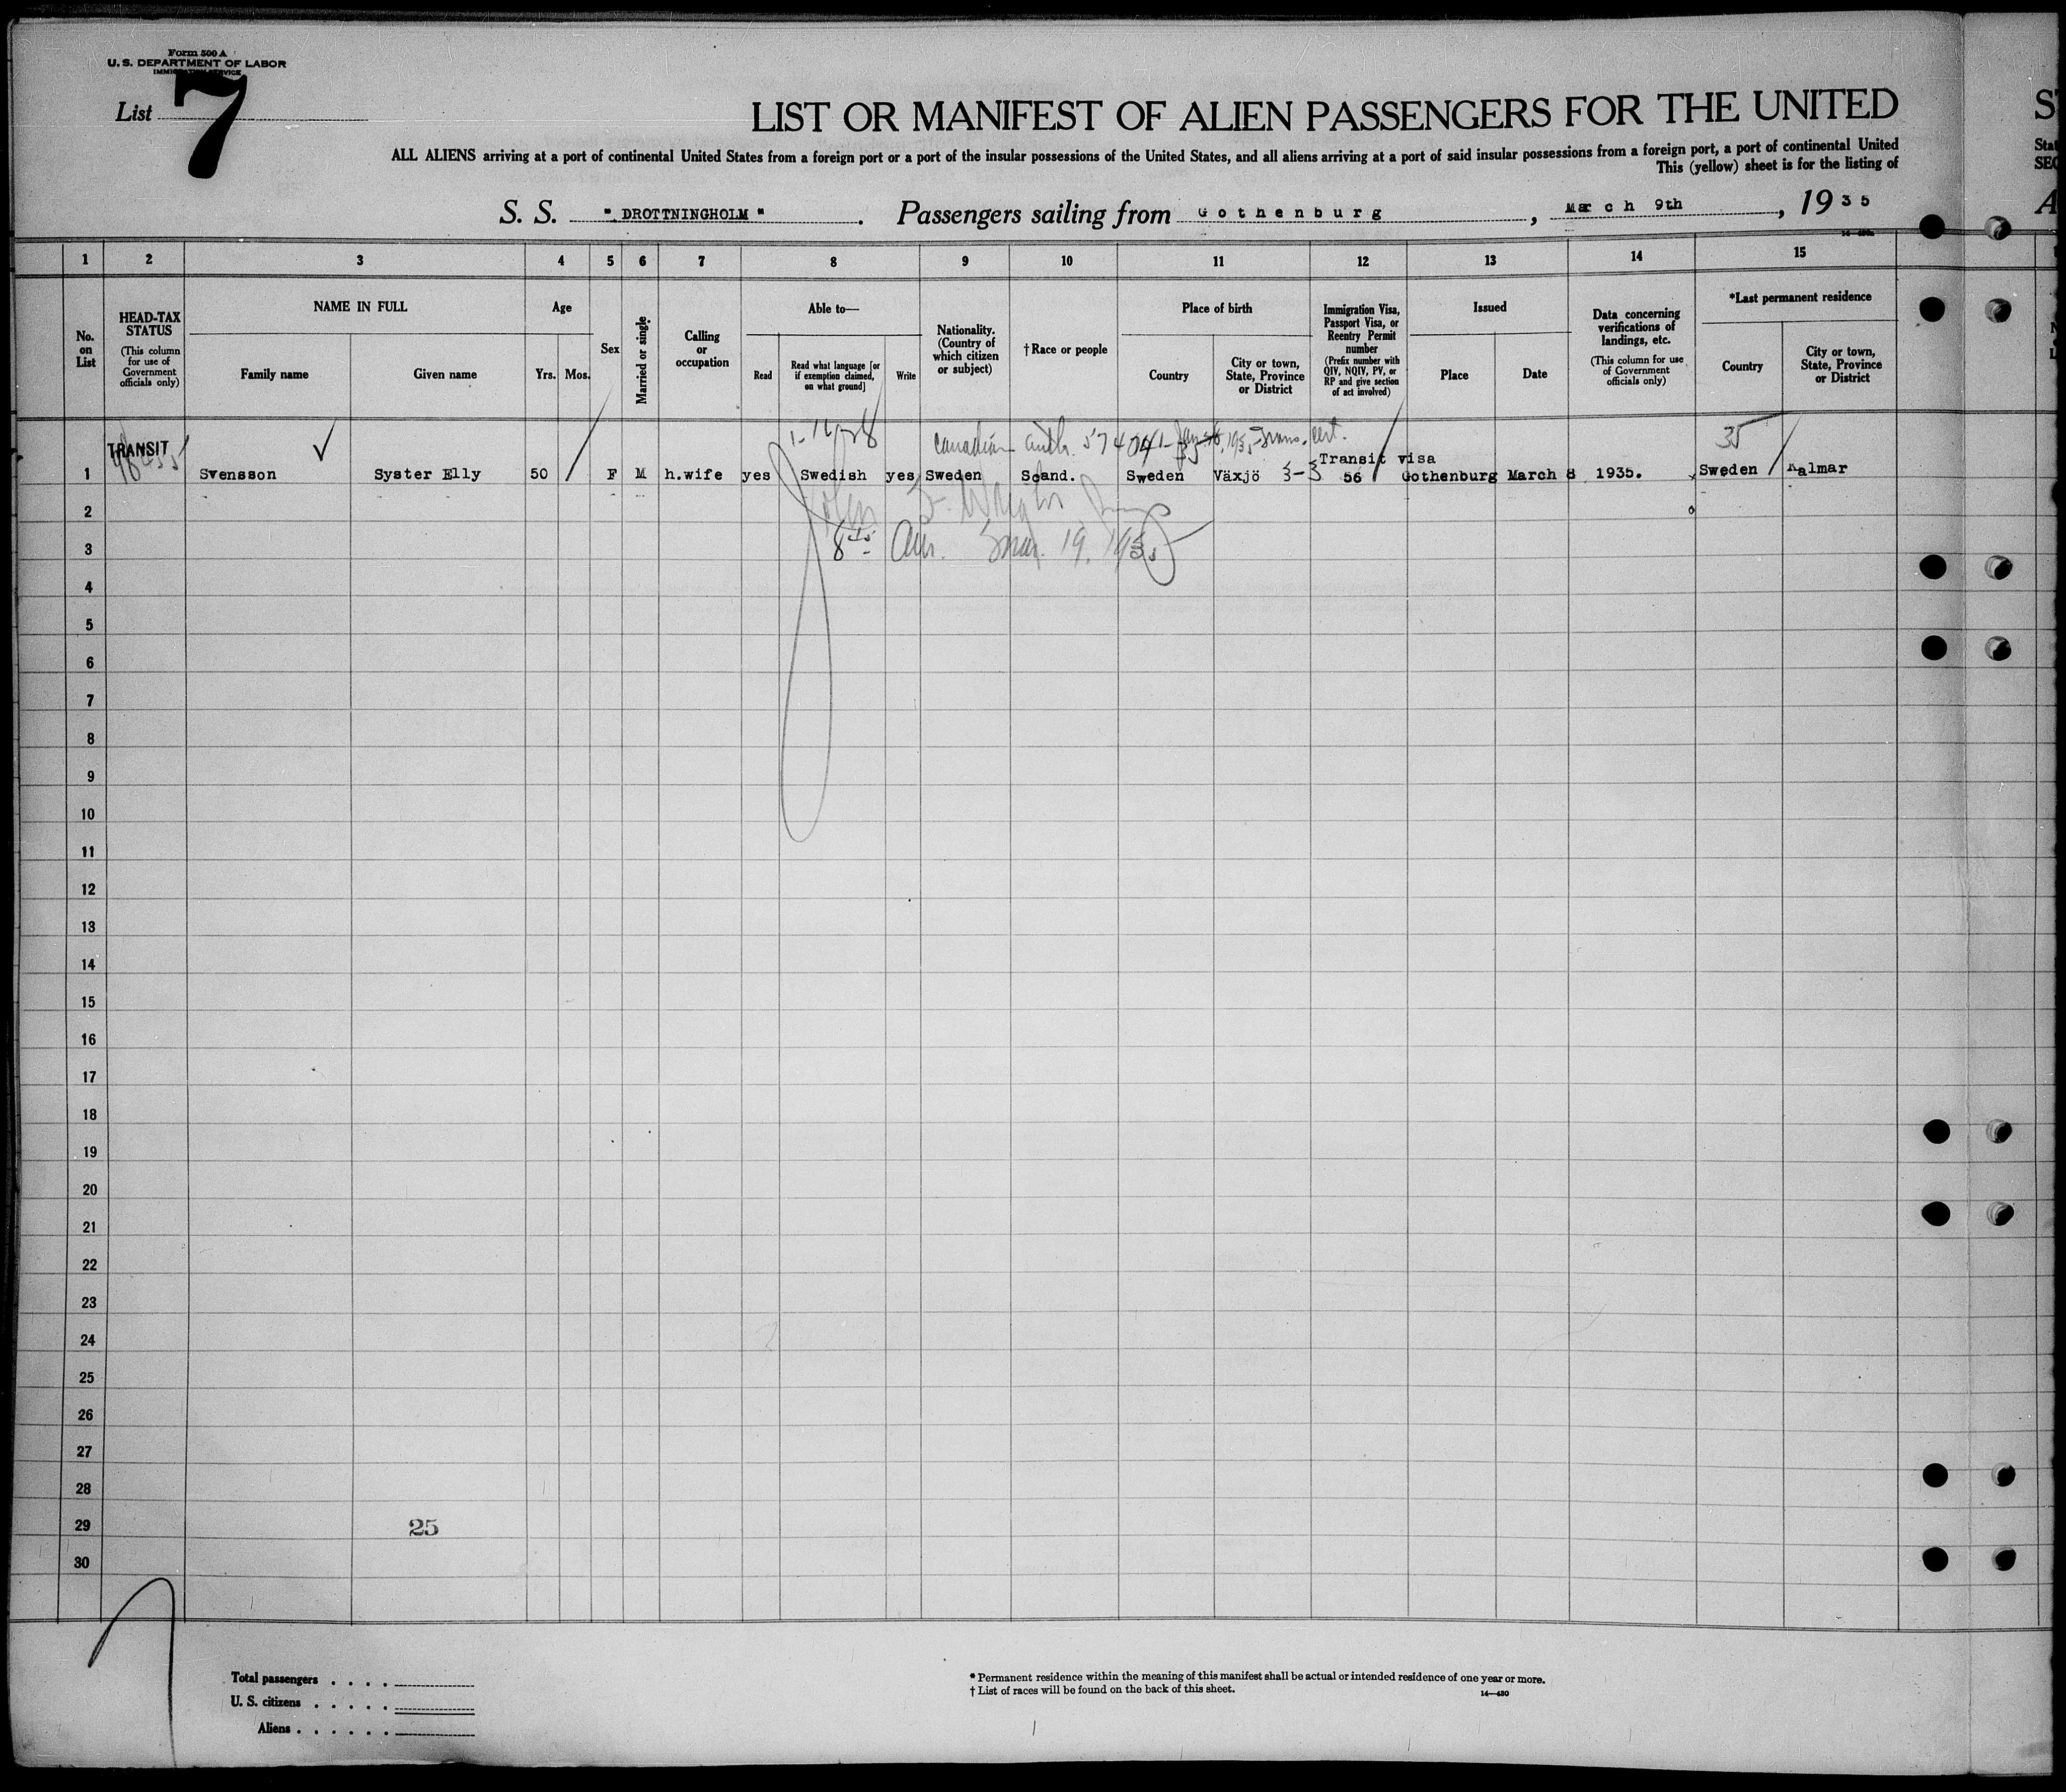 Form 500 A
U. S. DEPARTMENT OF LABOR
IMMIGRATION SERVICE
List 7
LIST OR MANIFEST OF ALIEN PASSENGERS FOR THE UNITED
ALL ALIENS arriving at a port of continental United States from a foreign port or a port of the insular possessions of the United States, and all aliens arriving at a port of said insular possessions from a foreign port, a port of continental United
This (yellow) sheet is for the listing of
S. S. "DROTTNINGHOLM". Passengers sailing from Gothenburg, March 9th, 1935
1 2 3 4 5 6 7 8 9 10 11 12 13 14 15
No. on List
HEAD-TAX STATUS
(This column for use of Government officials only)
NAME IN FULL
Family name
Given name
Age
Yrs. Mos.
Sex
Married or single
Calling or occupation
Able to—
Read
Read what language [or if exemption claimed, on what ground]
Write
Nationality. (Country of which citizen or subject)
†Race or people
Place of birth
Country
City or town, State, Province or District
Immigration Visa, Passport Visa, or Reentry Permit number
(Prefix number with QIV, NQIV, PV, or RP and give section of act involved)
Issued
Place
Date
Data concerning verifications of landings, etc.
(This column for use of Government officials only)
*Last permanent residence
Country
City or town, State, Province or District
TRANSIT
Canadian auth.
35
Transit visa
1 Svensson Syster Elly 50 F M h.wife yes Swedish yes Sweden Scand. Sweden Växjö 3-3 56 Gothenburg March 8 1935. Sweden Kalmar
2
3
Mar. 19, 1935
4
5
6
7
8
9
10
11
12
13
14
15
16
17
18
19
20
21
22
23
24
25
26
27
28
29 25
30
Total passengers
U. S. citizens
Aliens
* Permanent residence within the meaning of this manifest shall be actual or intended residence of one year or more.
† List of races will be found on the back of this sheet.
14—430